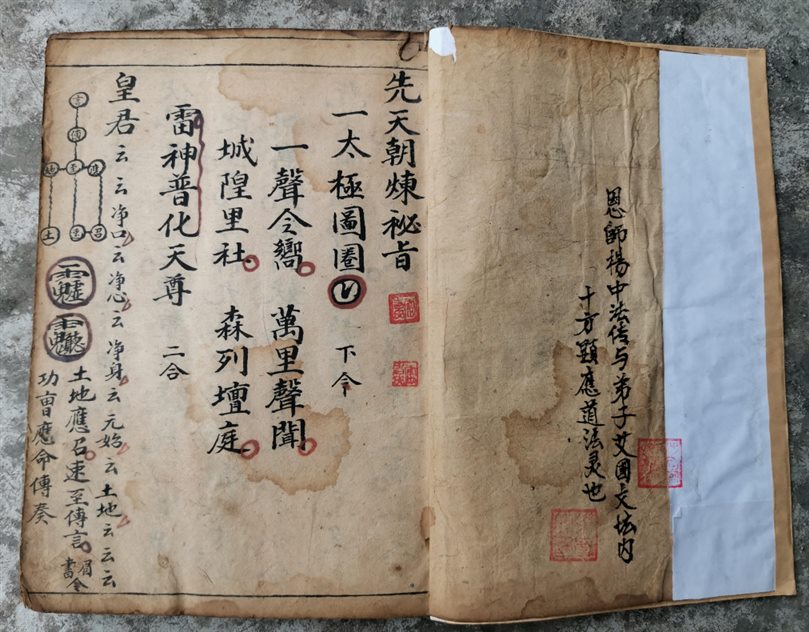 恩師楊中法传与弟子艾國文坛内
十方顕應道法灵也
先天朝煉秘旨
一太極圖圈 下令
一聲令嚮 萬里聲聞
城隍里社 森列壇庭
雷神普化天尊 二合
皇君云云净口云净心云净身云元始云土地云云云
土地應召速至傳言
功曺應命傳奏